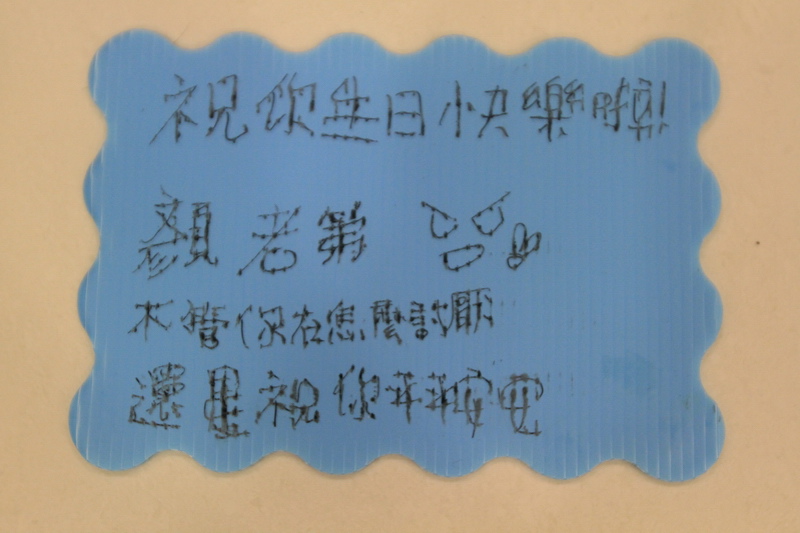 祝你生日快樂啦!
顏老弟
不管你在怎麼討厭
還是祝你平平安安